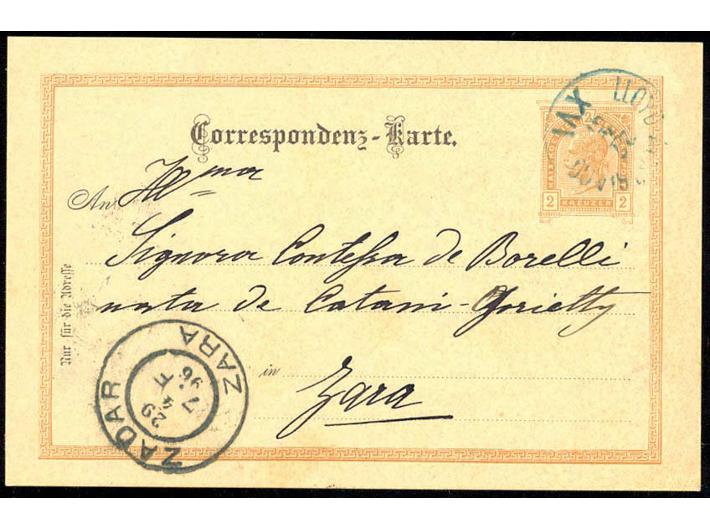 LLOYD
XVI
Correspondenz-Karte.
2 KREUZER 2
Ill^ma
An
Signora Contessa de Borelli
nata de Catani-
Nur für die Adresse
in Zara
ZARA
ZADAR
29
7
96